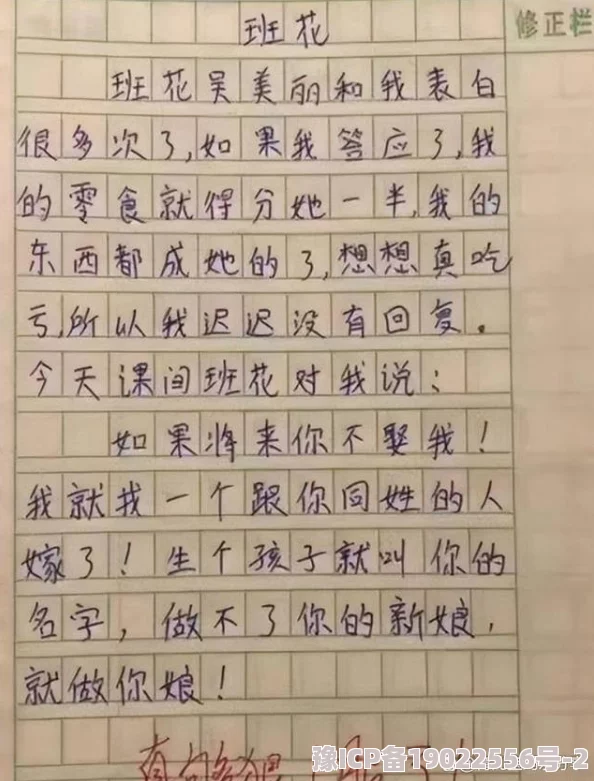 班花
修正栏
班花吴美丽和我表白
很多次了,如果我答应了,我
的零食就得分她一半,我的
东西都成她的了,想想真吃
亏,所以我迟迟没有回复。
今天课间班花对我说:
如果将来你不娶我!
我就找一个跟你同姓的人
嫁了!生个孩子就叫你的
名字,做不了你的新娘,
就做你娘!
豫ICP备19022556号-2